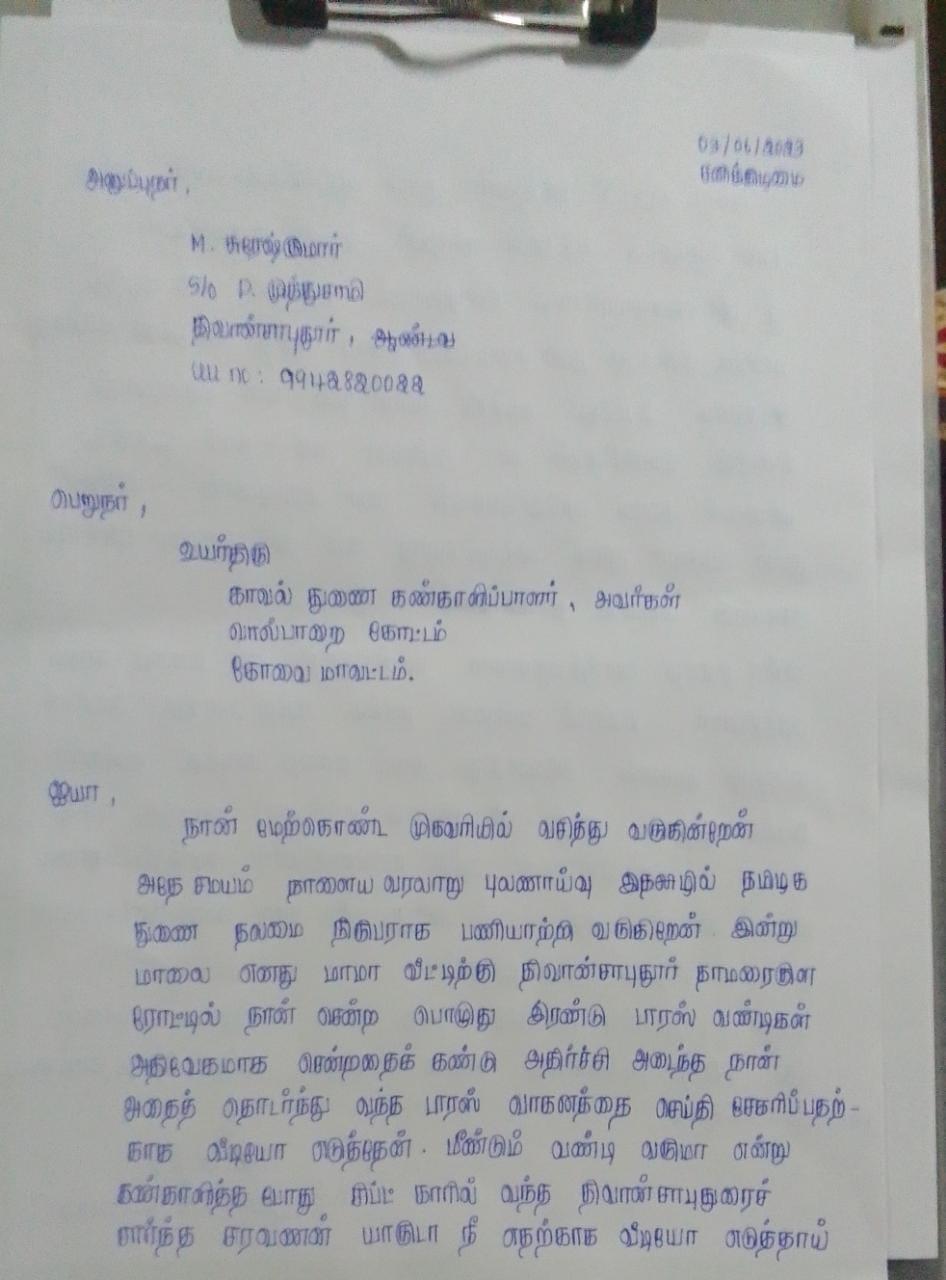 03/06/2023
சனிக்கிழமை
அனுப்புநர்,
M. சுரேஷ்குமார்
S/o P. முத்துசாமி
திவான்சாபுதூர், ஆனைமலை
செல் no: 9942820022
பெறுநர்,
உயர்திரு
காவல் துணை கண்காணிப்பாளர், அவர்கள்
வால்பாறை கோட்டம்
கோவை மாவட்டம்.
ஐயா,
நான் மேற்கொண்ட முகவரியில் வசித்து வருகின்றேன்
அதே சமயம் நாளைய வரலாறு புலனாய்வு இதழில் தமிழக
துணை தலமை நிருபராக பணியாற்றி வருகிறேன். இன்று
மாலை எனது மாமா வீட்டிற்கு திவான்சாபுதூர் தாமரைகுள
ரோட்டில் நான் சென்ற பொழுது இரண்டு பாரஸ் வண்டிகள்
அதிவேகமாக சென்றதைக் கண்டு அதிர்ச்சி அடைந்த நான்
அதைத் தொடர்ந்து வந்த பாரஸ் வாகனத்தை செய்தி சேகரிப்பதற்-
காக வீடியோ எடுத்தேன். மீண்டும் வண்டி வருமா என்று
கண்காணித்த போது சிப்ட் காரில் வந்த திவான்சாபுதுரைச்
சார்ந்த சரவணன் யாருடா நீ எதற்காக வீடியோ எடுத்தாய்